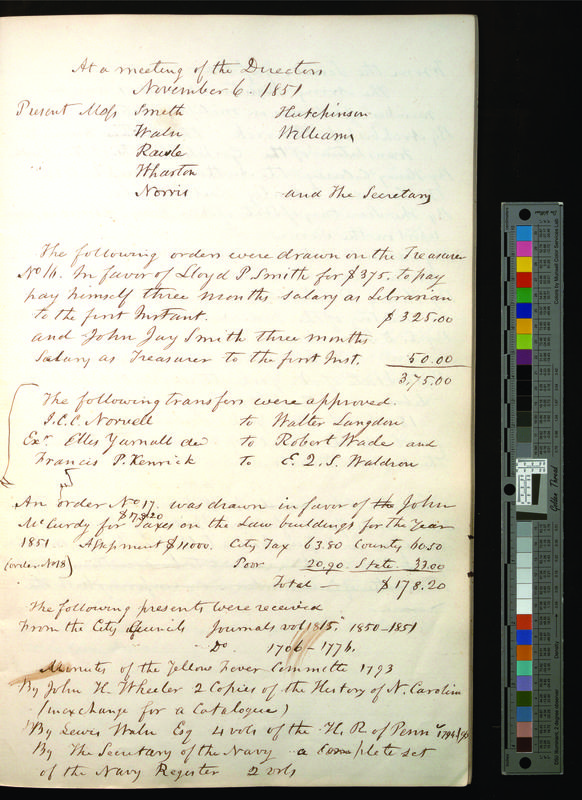 At a meeting of the Directors
November 6. 1851
Present Mess Smith Hutchinson
Waln Williams
Rawle
Wharton
Norris and The Secretary
The following orders were drawn on the Treasurer
No 16. In favor of Lloyd P. Smith for $375. to pay
pay himself three months salary as Librarian
to the first Instant. $325.00
and John Jay Smith three months
Salary as Treasurer to the first Inst. 50.00
3,75.00
The following transfers were approved.
J.C.C. Norvell to Walter Langdon
Exr. Ellis Yarnall dec to Robert Wade and
Francis P. Kenrick to E. Q. S. Waldron
An order No 17. was drawn in favor of the John
McCurdy for $178.20 Taxes on the Law buildings for the Year
1851 Assessment $11000. City Tax 63.80 County 60.50
(order No 18) Poor 20.90 State 33.00
Total — $178.20
The following presents were received
From the City Councils Journals vol 1815, 1850–1851
Do. 1706–1776.
Minutes of the Yellow Fever Committe 1793
By John H. Wheeler 2 Copies of the History of N. Carolina
(in exchange for a Catalogue)
By Lewis Waln Esq 4 vols of the H. R. of Penna
By The Secretary of the Navy a complete set
of the Navy Register 2 vols
Golden Thread